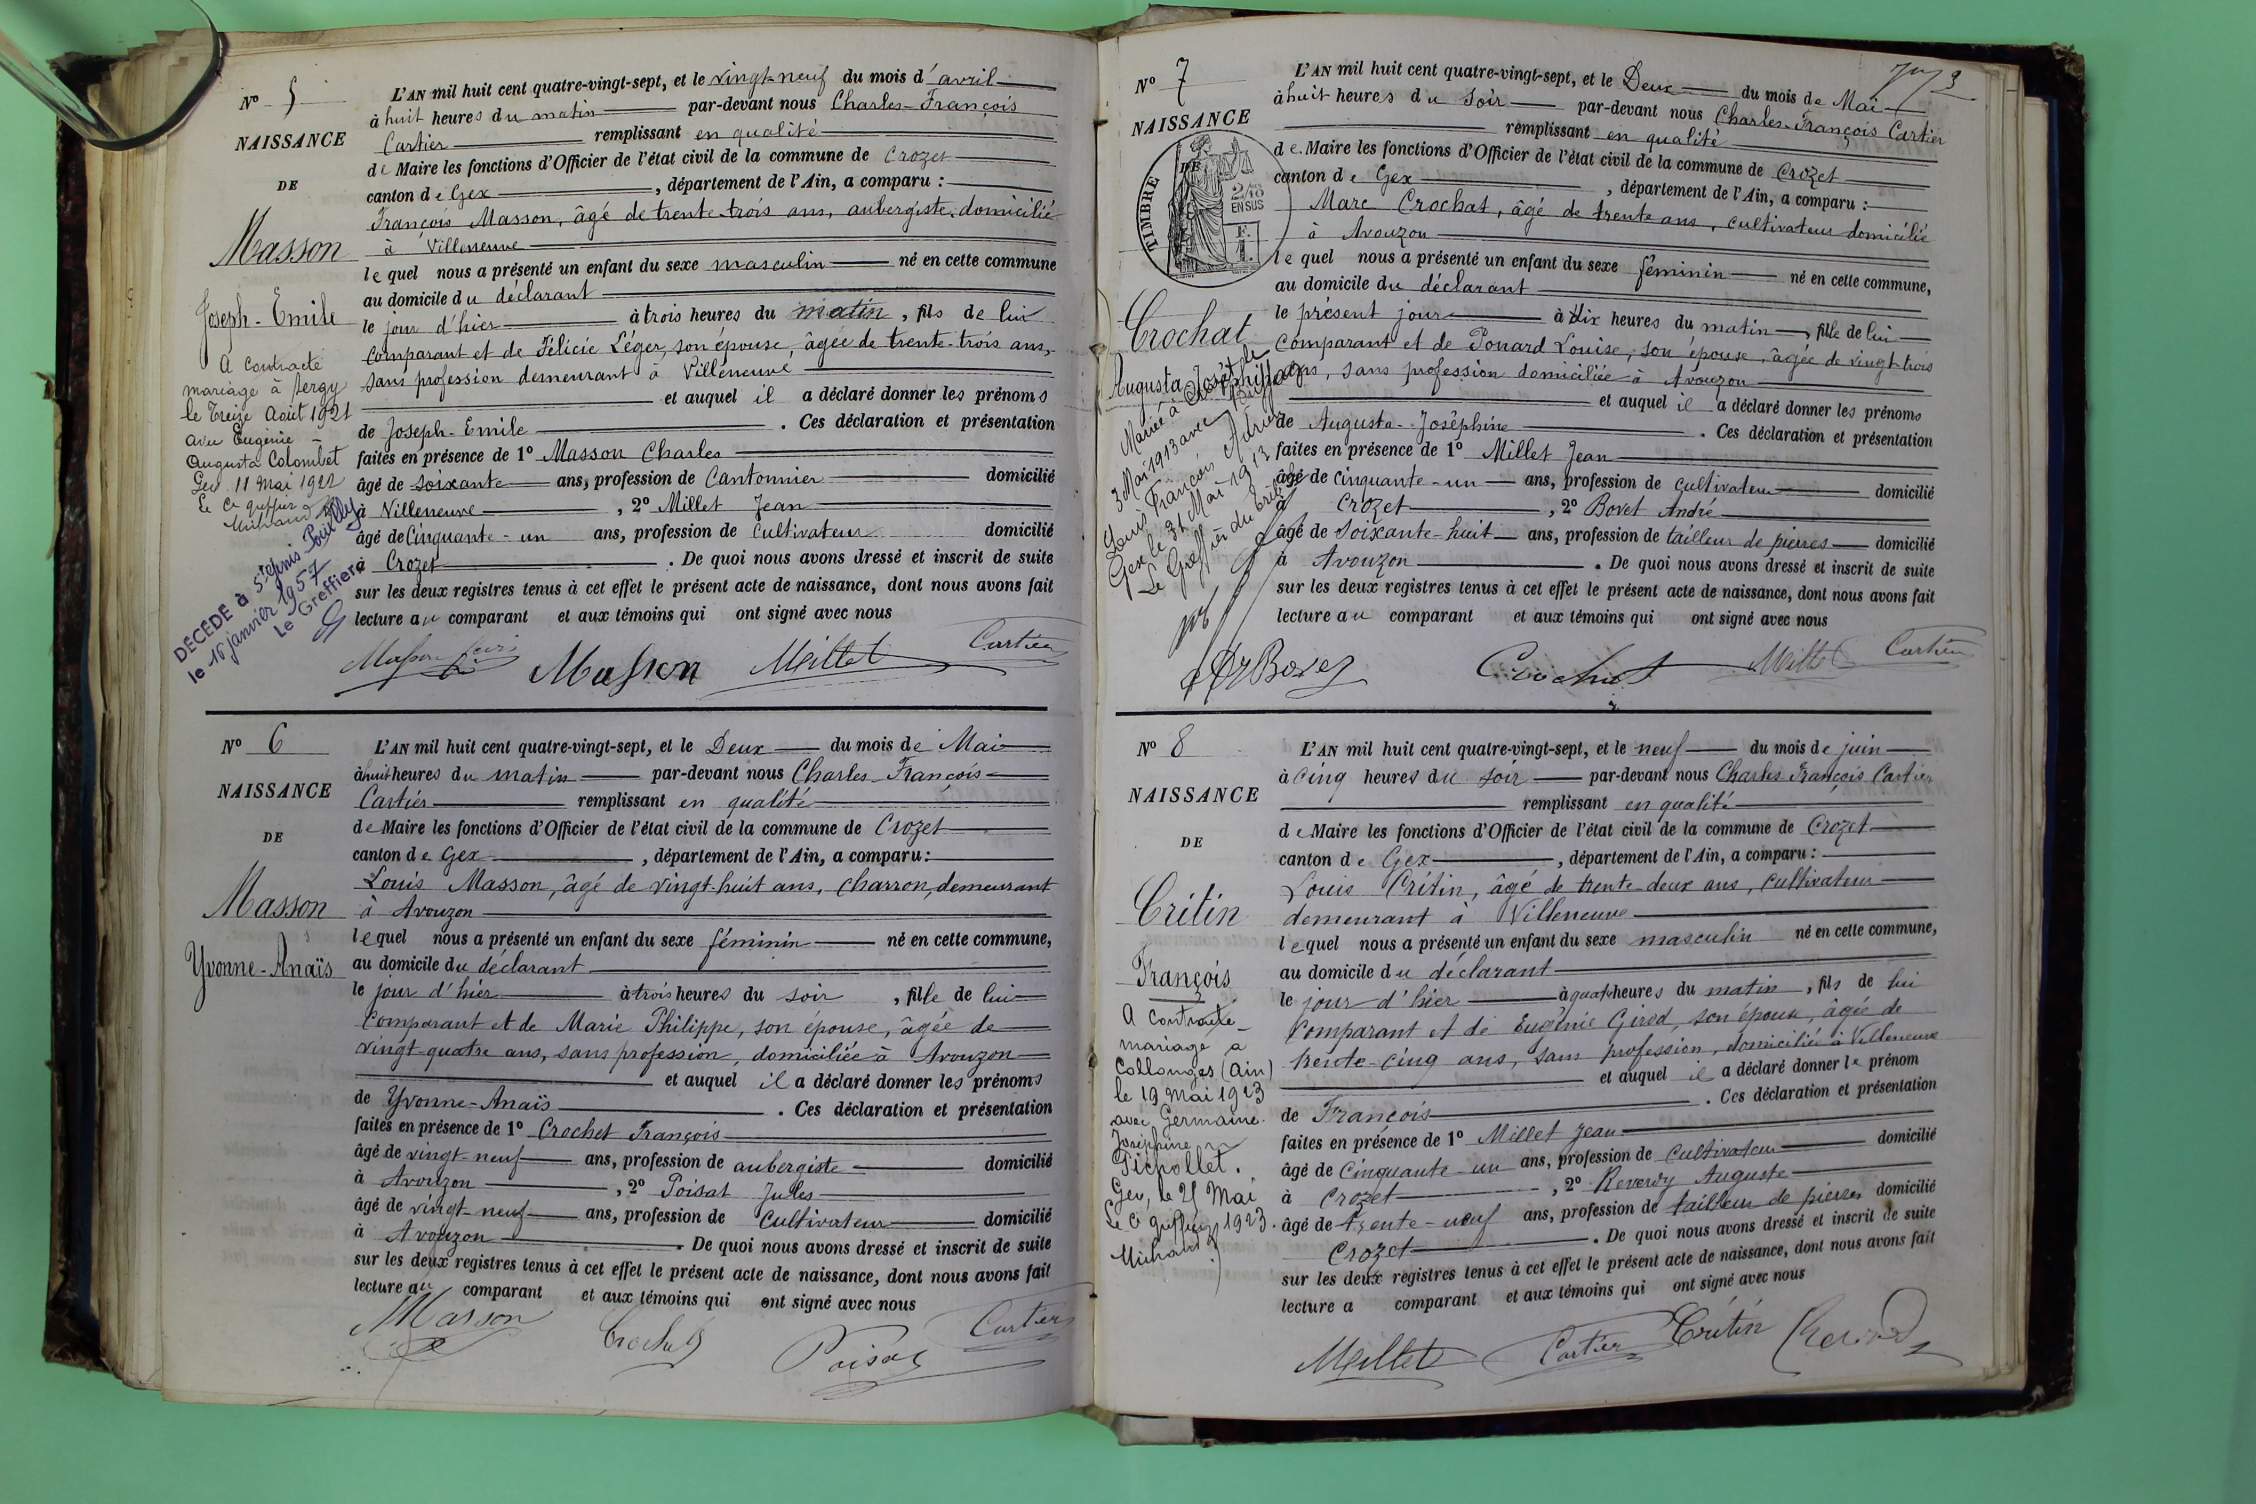 N° 5
NAISSANCE
DE
Masson
Joseph-Emile
A contracté
mariage à Pergy
le treize Août 1921
avec Eugénie -
Augusta Colombet
Gex 11 Mai 1922
Le Cis greffier
Michaud
DÉCÉDÉ à St Genis Pouilly
le 16 janvier 1957
Le Greffier
L'AN mil huit cent quatre-vingt-sept, et le vingt-neuf du mois d'avril
à huit heures du matin par-devant nous Charles-François
Cartier remplissant en qualité
de Maire les fonctions d'Officier de l'état civil de la commune de Crozet
canton de Gex, département de l'Ain, a comparu :
François Masson, âgé de trente-trois ans, aubergiste, domicilié
à Villeneuve
lequel nous a présenté un enfant du sexe masculin né en cette commune
au domicile du déclarant
le jour d'hier à trois heures du matin, fils de lui
comparant et de Félicie Léger, son épouse, âgée de trente-trois ans,
sans profession demeurant à Villeneuve
et auquel il a déclaré donner les prénoms
de Joseph-Emile. Ces déclaration et présentation
faites en présence de 1° Masson Charles
âgé de soixante ans, profession de Cantonnier domicilié
à Villeneuve, 2° Millet Jean
âgé de Cinquante-un ans, profession de Cultivateur domicilié
à Crozet. De quoi nous avons dressé et inscrit de suite
sur les deux registres tenus à cet effet le présent acte de naissance, dont nous avons fait
lecture au comparant et aux témoins qui ont signé avec nous
Masson Masson Millet Cartier
N° 6
NAISSANCE
DE
Masson
Yvonne-Anaïs
L'AN mil huit cent quatre-vingt-sept, et le Deux du mois de Mai
à huit heures du matin par-devant nous Charles-François
Cartier remplissant en qualité
de Maire les fonctions d'Officier de l'état civil de la commune de Crozet
canton de Gex, département de l'Ain, a comparu :
Louis Masson, âgé de vingt-huit ans, charron, demeurant
à Avouzon
lequel nous a présenté un enfant du sexe féminin né en cette commune,
au domicile du déclarant
le jour d'hier à trois heures du soir, fille de lui
comparant et de Marie Philippe, son épouse, âgée de
vingt-quatre ans, sans profession, domiciliée à Avouzon
et auquel il a déclaré donner les prénoms
de Yvonne-Anaïs. Ces déclaration et présentation
faites en présence de 1° Crochet François
âgé de vingt-neuf ans, profession de aubergiste domicilié
à Avouzon, 2° Poisat Jules
âgé de vingt-neuf ans, profession de Cultivateur domicilié
à Avouzon. De quoi nous avons dressé et inscrit de suite
sur les deux registres tenus à cet effet le présent acte de naissance, dont nous avons fait
lecture au comparant et aux témoins qui ont signé avec nous
Masson Crochet Poisat Cartier
3
N° 7
NAISSANCE
DE
TIMBRE
2/10
EN SUS
F.
1.
Crochat
Augusta Joséphine
Mariée à Crozet le
3 Mai 1913 avec
Louis François Adrien
Gex le 31 Mai 1913
Le Greffier du trib.
L'AN mil huit cent quatre-vingt-sept, et le Deux du mois de Mai
à huit heures du soir par-devant nous Charles-François Cartier
remplissant en qualité
de Maire les fonctions d'Officier de l'état civil de la commune de Crozet
canton de Gex, département de l'Ain, a comparu :
Marc Crochat, âgé de trente ans, cultivateur domicilié
à Avouzon
lequel nous a présenté un enfant du sexe féminin né en cette commune,
au domicile du déclarant
le présent jour à dix heures du matin, fille de lui
comparant et de Ponard Louise, son épouse, âgée de vingt-trois
ans, sans profession domiciliée à Avouzon
et auquel il a déclaré donner les prénoms
de Augusta-Joséphine. Ces déclaration et présentation
faites en présence de 1° Millet Jean
âgé de cinquante-un ans, profession de cultivateur domicilié
à Crozet, 2° Bovet André
âgé de soixante-huit ans, profession de tailleur de pierres domicilié
à Avouzon. De quoi nous avons dressé et inscrit de suite
sur les deux registres tenus à cet effet le présent acte de naissance, dont nous avons fait
lecture au comparant et aux témoins qui ont signé avec nous
Bovet Crochat Millet Cartier
N° 8
NAISSANCE
DE
Critin
François
A contracté
mariage à
Collonges (Ain)
le 19 Mai 1923
avec Germaine
Joséphine
Pichollet.
Gex, le 25 Mai
Le Cis greffier 1923.
Michaud
L'AN mil huit cent quatre-vingt-sept, et le neuf du mois de juin
à cinq heures du soir par-devant nous Charles François Cartier
remplissant en qualité
de Maire les fonctions d'Officier de l'état civil de la commune de Crozet
canton de Gex, département de l'Ain, a comparu :
Louis Critin, âgé de trente-deux ans, cultivateur
demeurant à Villeneuve
lequel nous a présenté un enfant du sexe masculin né en cette commune,
au domicile du déclarant
le jour d'hier à quatre heures du matin, fils de lui
comparant et de Eugénie Girod, son épouse, âgée de
trente-cinq ans, sans profession, domiciliée à Villeneuve
et auquel il a déclaré donner le prénom
de François. Ces déclaration et présentation
faites en présence de 1° Millet Jean
âgé de cinquante-un ans, profession de cultivateur domicilié
à Crozet, 2° Reverdy Auguste
âgé de trente-neuf ans, profession de tailleur de pierres domicilié
Crozet. De quoi nous avons dressé et inscrit de suite
sur les deux registres tenus à cet effet le présent acte de naissance, dont nous avons fait
lecture a comparant et aux témoins qui ont signé avec nous
Millet Cartier Critin